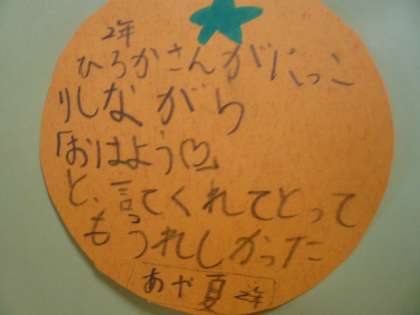 2年
ひろかさんがにっこ
りしながら
「おはよう♡」
と、言てくれてとって
もうれしかった
あや夏 2年